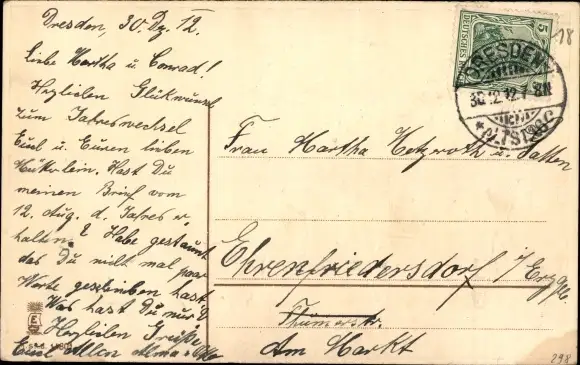 Dresden, 30. Dz. 12.
liebe Martha u. Conrad!
Herzlichen Glückwunsch
zum Jahreswechsel
Euch u. Euren lieben
Hast Du
meinen Brief vom
12. Aug. d. Jahres er
halten? Habe gestaunt
das Du nicht mal paar
Worte geschrieben hast
Was hast Du nur?
Herzlichen Grüße
Euch Allen Alma
5
DEUTSCHES REICH
DRESDEN
30.12.12.
ALTST.
18
Frau Martha Hetzroth u. Gatten
Ehrenfriedersdorf i/Erzg.
Thumerstr.
Am Markt
298